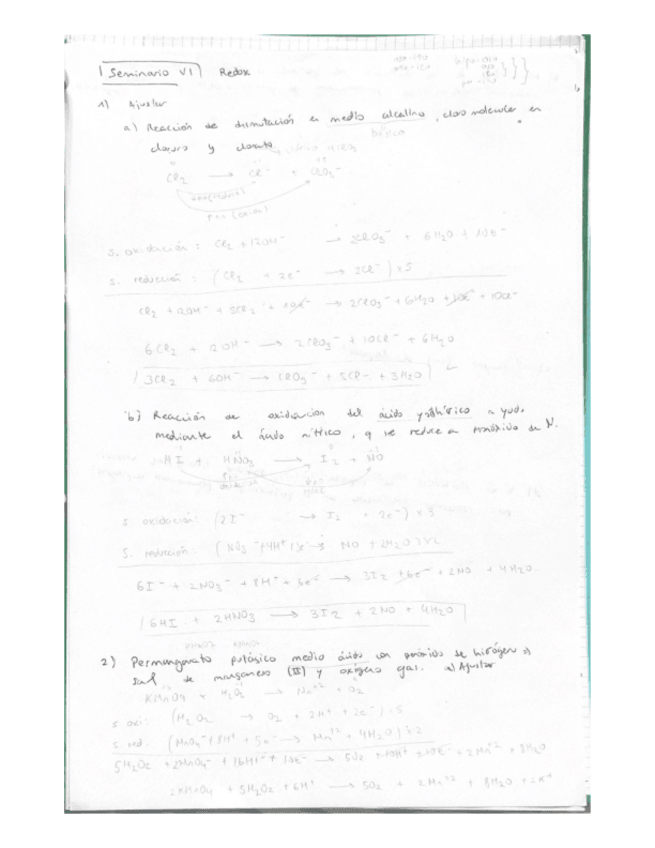 Seminario VI Redox
1) Ajustar
a) Reacción de dismutación en medio alcalino, cloro molecular en
básico
cloruro y clorato
Cl2 → Cl- + ClO3-
s. oxidación: Cl2 + 12OH- → 2ClO3- + 6H2O + 10e-
s. reducción: (Cl2 + 2e- → 2Cl-) x5
Cl2 + 12OH- + 5Cl2 + 10e- → 2ClO3- + 6H2O + 10e- + 10Cl-
6Cl2 + 12OH- → 2ClO3- + 10Cl- + 6H2O
3Cl2 + 6OH- → ClO3- + 5Cl- + 3H2O
b) Reacción de oxidación del ácido yodhídrico a yodo
mediante el ácido nítrico, q se reduce a monóxido de N.
HI + HNO3 → I2 + NO
s. oxidación: (2I- → I2 + 2e-) x3
s. reducción: (NO3- + 4H+ + 3e- → NO + 2H2O) x2
6I- + 2NO3- + 8H+ + 6e- → 3I2 + 6e- + 2NO + 4H2O
6HI + 2HNO3 → 3I2 + 2NO + 4H2O
2) Permanganato potásico medio ácido con peróxido de hidrógeno
sal de manganeso (II) y oxígeno gas. a) Ajustar
KMnO4 + H2O2 → Mn+2 + O2
s. oxi: (H2O2 → O2 + 2H+ + 2e-) x5
s. red. (MnO4- + 8H+ + 5e- → Mn+2 + 4H2O) x2
5H2O2 + 2MnO4- + 16H+ + 10e- → 5O2 + 10H+ + 10e- + 2Mn+2 + 8H2O
2KMnO4 + 5H2O2 + 6H+ → 5O2 + 2Mn+2 + 8H2O + 2K+